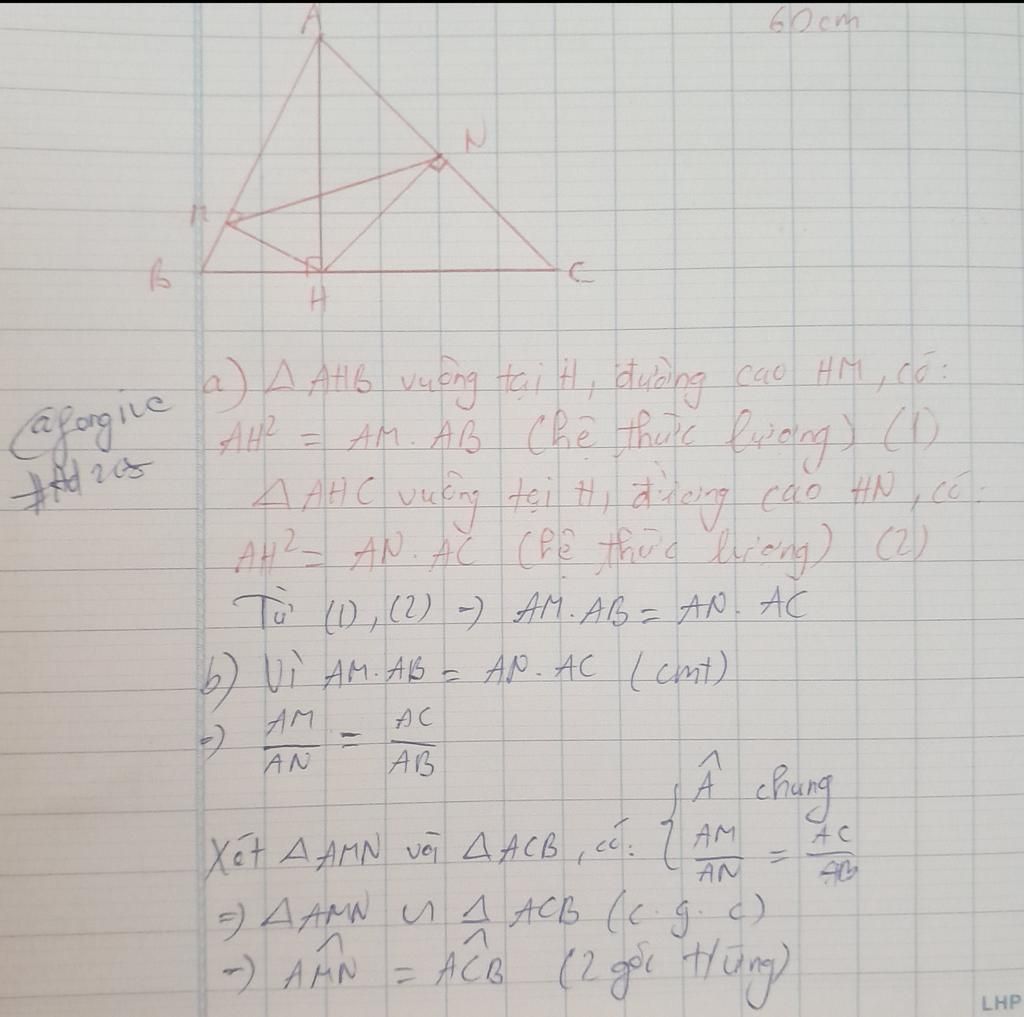 60cm
A
N
M
B
H
C
a) Δ AHB vuông tại H, đường cao HM, có:
@forgive
AH² = AM. AB (hệ thức lượng) (1)
Δ AHC vuông tại H, đường cao HN, có:
AH² = AN. AC (hệ thức lượng) (2)
Từ (1), (2) => AM. AB = AN. AC
b) Vì AM. AB = AN. AC (cmt)
=> AM/AN = AC/AB
Xét Δ AMN và Δ ACB, có: { Â chung
AM/AN = AC/AB
=> Δ AMN ∽ Δ ACB (c. g. c)
=> AM̂N = AĈB (2 góc t/ứng)
LHP